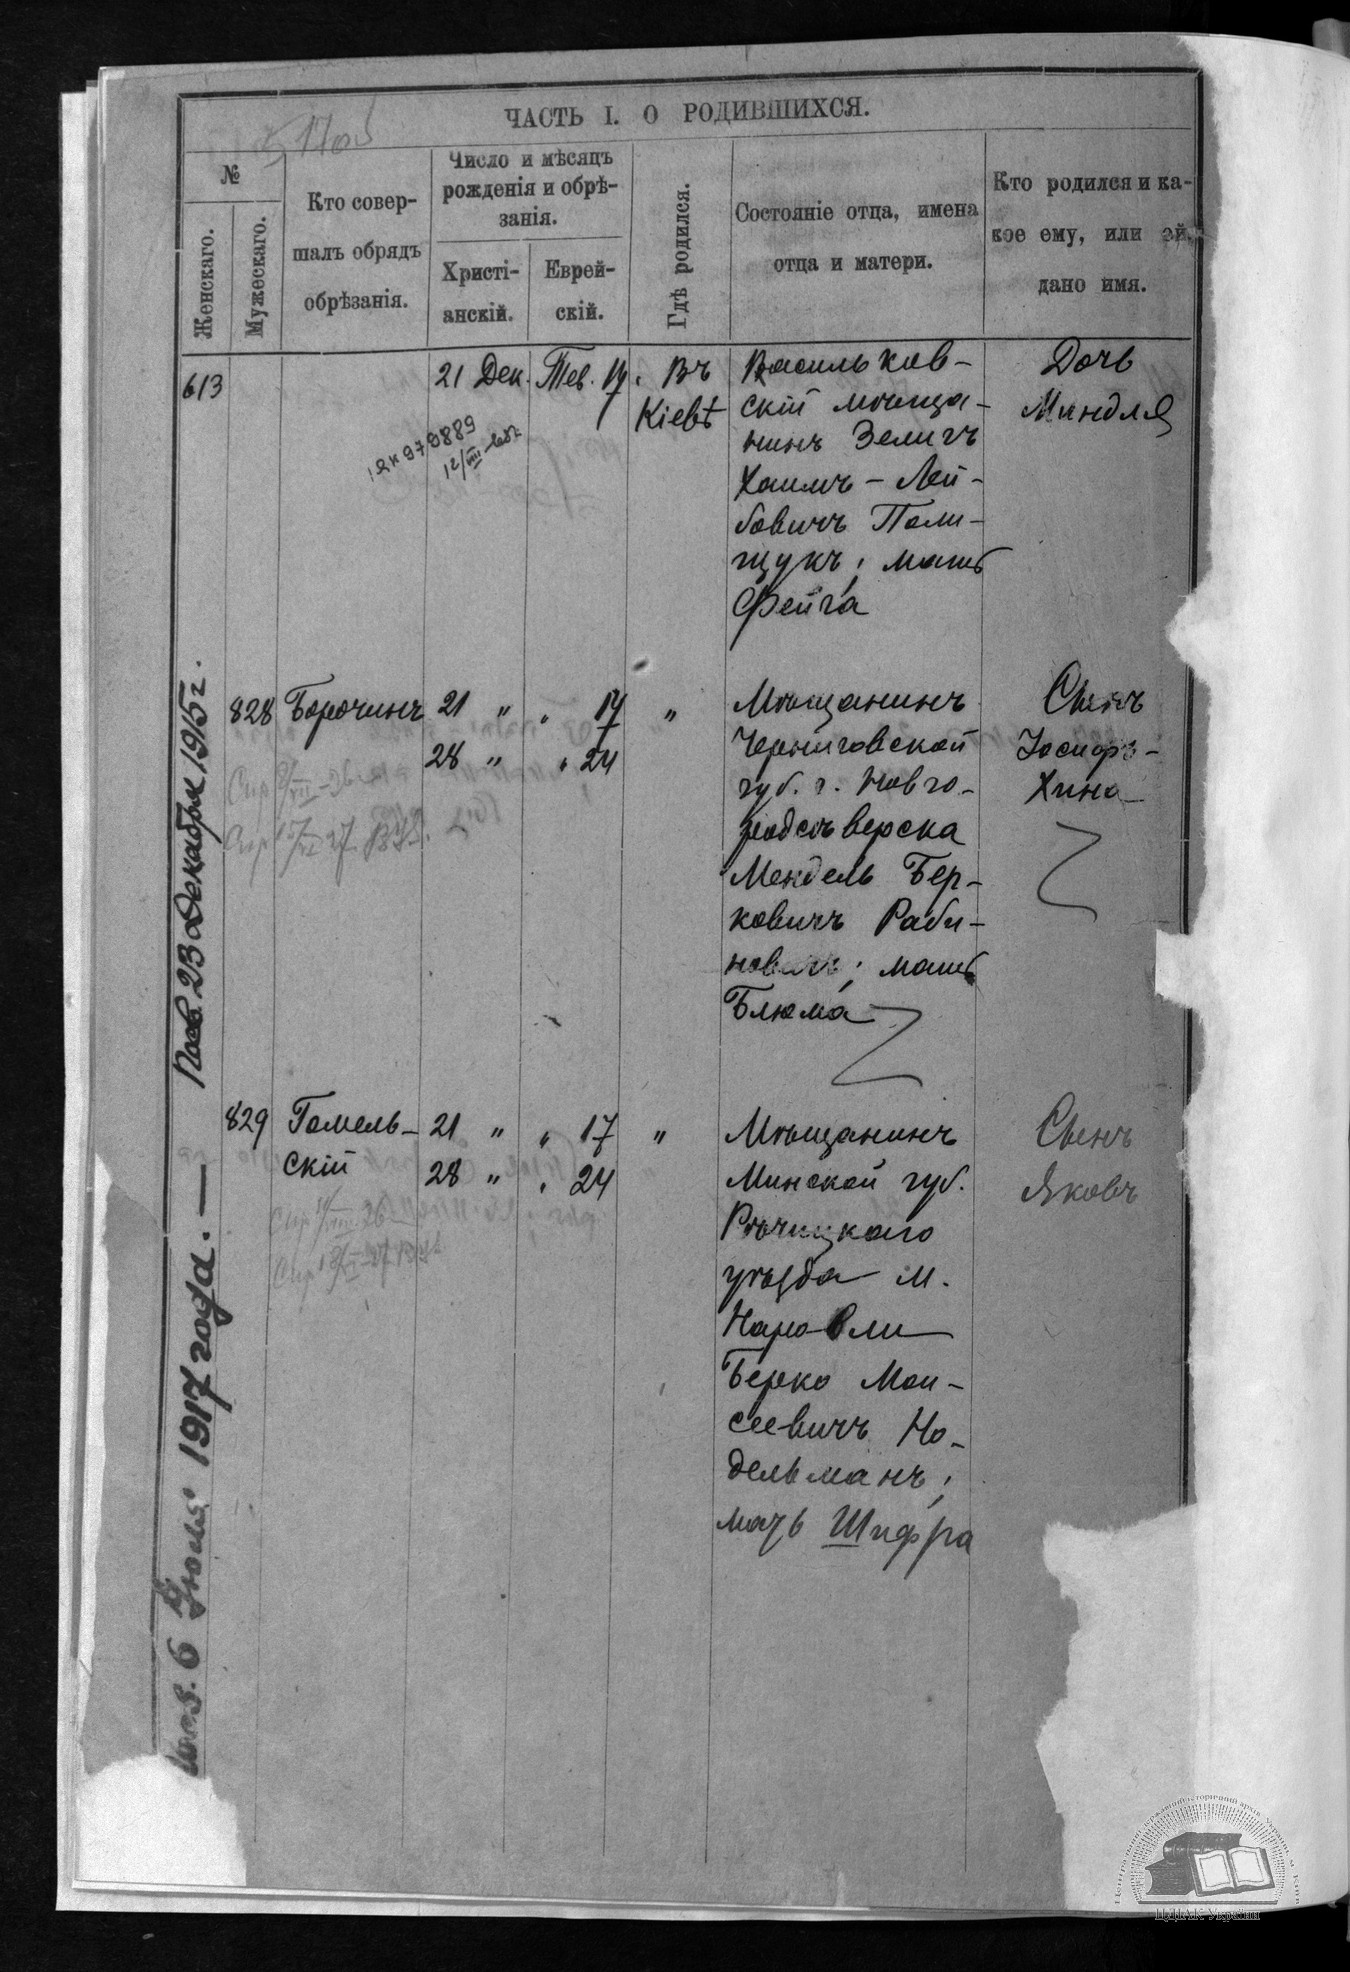 ЧАСТЬ I. О РОДИВШИХСЯ.
№
Женскаго.
Мужескаго.
Кто совер-
шалъ обрядъ
обрѣзанія.
Число и мѣсяцъ
рожденія и обрѣ-
занія.
Христі-
анскій.
Еврей-
скій.
Гдѣ родился.
Состояніе отца, имена
отца и матери.
Кто родился и ка-
кое ему, или ей,
дано имя.
613
21 Дек.
Тев. 17
Въ
Кіевѣ
Васильков-
скій мѣща-
нинъ Зелигъ
Хаимъ-Лей-
бовичъ Поли-
щукъ; мать
Фейга
Дочь
Миндля
979889
828
Борочинъ
21 " " 17 "
28 " " 24
Мѣщанинъ
Черниговской
губ. г. Новго-
родсѣверска
Мендель Бер-
ковичъ Раби-
новичъ; мать
Блюма
Сынъ
Іосифъ-
Хина
829
Гомель-
скій
21 " " 17 "
28 " " 24
Мѣщанинъ
Минской губ.
Рѣчицкаго
уѣзда м.
Наровли
Берко Мои-
сеевичъ Но-
дельманъ;
мать Шифра
Сынъ
Яковъ
23 Декабря 1915 г.
6 Іюля 1917 года.
ЦДІАК України